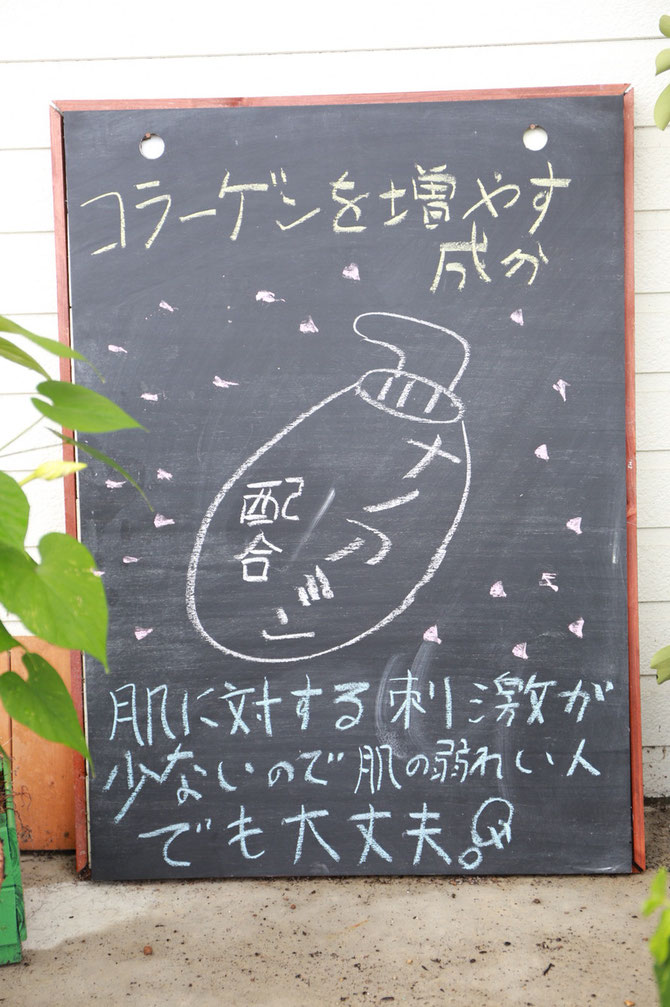 コラーゲンを増やす
成分
ナイアシン
配合
肌に対する刺激が
少ないので肌の弱れい人
でも大丈夫。